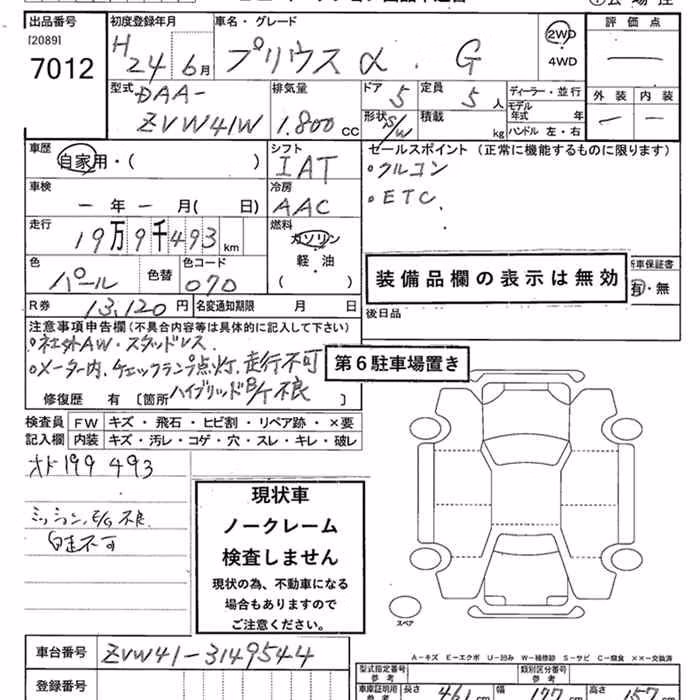 出品番号
[2089]
7012
初度登録年月
H 24 6月
車名・グレード
プリウス α . G
2WD
4WD
評価点
型式
DAA-
ZVW41W
排気量
1.800 CC
ドア 5
定員 5 人
形状 S/W
積載 kg
ディーラー・並行
モデル年式 年
ハンドル 左・右
外装 内装
車歴
自家用・( )
シフト
IAT
セールスポイント (正常に機能するものに限ります)
・クルコン
・ETC
車検
ー 年 ー 月( 日)
冷房
AAC
走行
19万9千493km
燃料
ガソリン
軽・油
( )
色
パール
色替
色コード
070
装備品欄の表示は無効
新車保証書
有・無
R券 13,120円
名変通知期限 月 日
後日品
注意事項申告欄(不具合内容等は具体的に記入して下さい)
・社外AW・スタッドレス
・メーター内、チェックランプ点灯、走行不可
ハイブリッドB/T不良
修復歴 有 [箇所 ]
第6駐車場置き
検査員記入欄
FW キズ・飛石・ヒビ割・リペア跡・×要
内装 キズ・汚レ・コゲ・穴・スレ・キレ・破レ
オド199493
ミッション、E/G不良
自走不可
現状車
ノークレーム
検査しません
現状の為、不動車になる
場合もありますので
ご注意ください。
スペア
車台番号
ZVW41-3149544
登録番号
A-キズ E-エクボ U-凹み W-補修跡 S-サビ C-腐食 ×-要交換 ××-交換済
型式指定番号
参考
類別区分番号
車庫証明用
参考
長さ 461 cm
幅 177 cm
高さ 157 cm